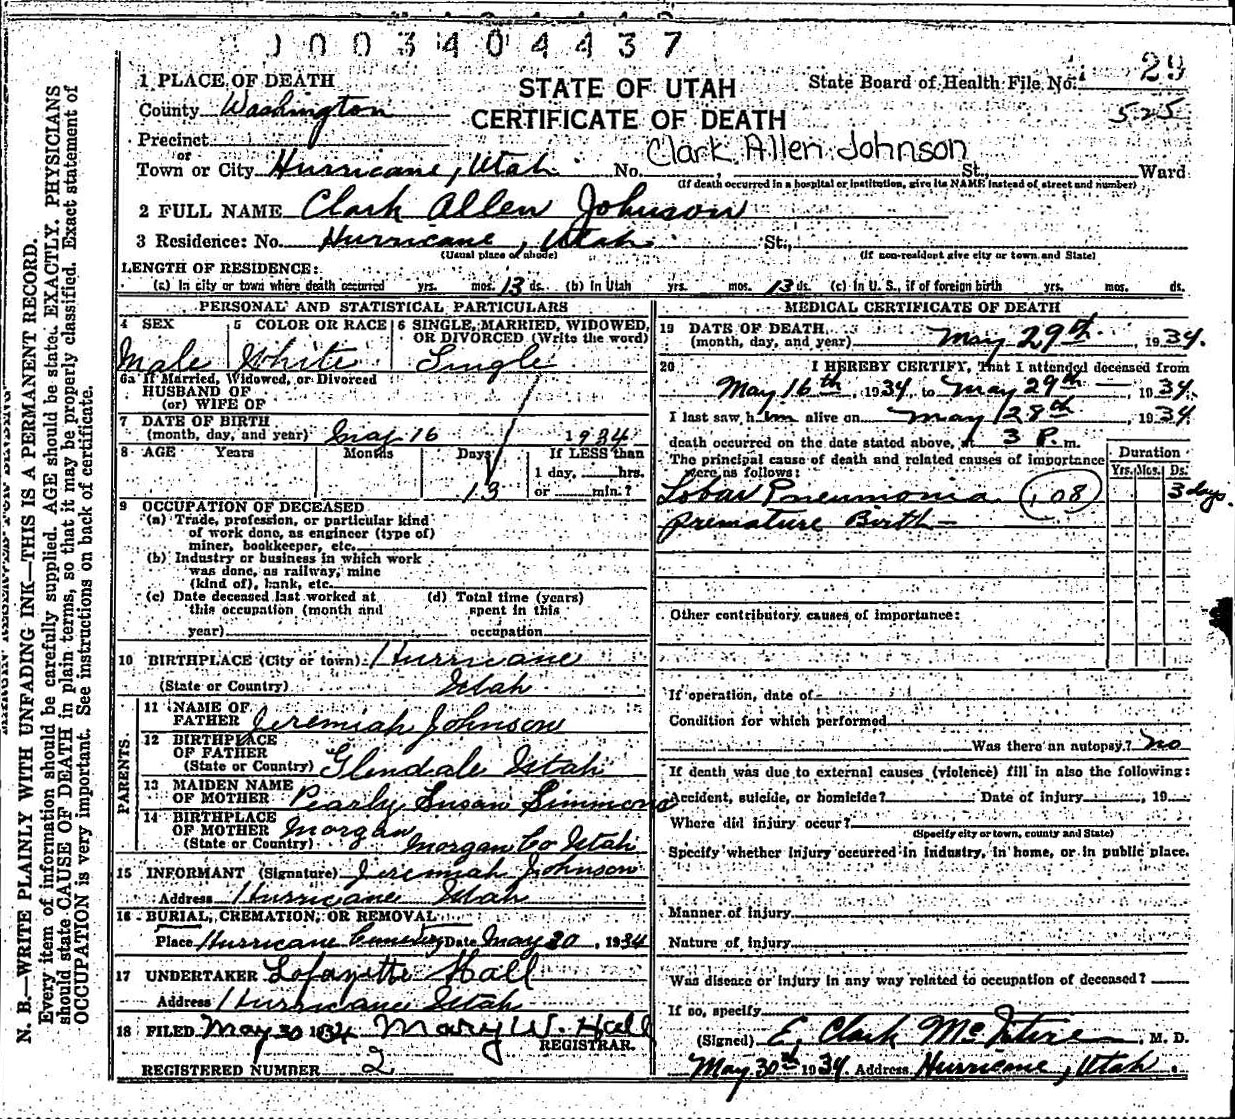 0003404437
STATE OF UTAH
CERTIFICATE OF DEATH
State Board of Health File No. 29
525
1 PLACE OF DEATH
County Washington
Precinct
or
Town or City Hurricane, Utah. No. Clark Allen Johnson St., Ward
(If death occurred in a hospital or institution, give its NAME instead of street and number)
2 FULL NAME Clark Allen Johnson
3 Residence: No. Hurricane, Utah. St.,
(Usual place of abode) (If non-resident give city or town and State)
LENGTH OF RESIDENCE:
(a) In city or town where death occurred yrs. mos. 13 ds. (b) In Utah yrs. mos. 13 ds. (c) In U. S., if of foreign birth yrs. mos. ds.
PERSONAL AND STATISTICAL PARTICULARS
4 SEX 5 COLOR OR RACE 6 SINGLE, MARRIED, WIDOWED,
OR DIVORCED (Write the word)
Male White Single
6a If Married, Widowed, or Divorced
HUSBAND OF
(or) WIFE OF
7 DATE OF BIRTH
(month, day, and year) May 16 1934
8 AGE Years Months Days If LESS than
1 day, hrs.
13 or min.?
9 OCCUPATION OF DECEASED
(a) Trade, profession, or particular kind
of work done, as engineer (type of)
miner, bookkeeper, etc.
(b) Industry or business in which work
was done, as railway, mine
(kind of), bank, etc.
(c) Date deceased last worked at (d) Total time (years)
this occupation (month and spent in this
year) occupation
10 BIRTHPLACE (City or town) Hurricane
(State or Country) Utah
PARENTS.
11 NAME OF
FATHER Jeremiah Johnson
12 BIRTHPLACE
OF FATHER
(State or Country) Glendale Utah
13 MAIDEN NAME
OF MOTHER Pearly Susan Simmons
14 BIRTHPLACE
OF MOTHER Morgan
(State or Country) Morgan Co Utah
15 INFORMANT (Signature) Jeremiah Johnson
Address Hurricane Utah
16 BURIAL, CREMATION, OR REMOVAL
Place Hurricane Cemetery Date May 30, 1934
17 UNDERTAKER Lafayette Hall
Address Hurricane Utah
18 FILED May 30 1934 Mary W. Hall
REGISTRAR.
REGISTERED NUMBER 2
MEDICAL CERTIFICATE OF DEATH
19 DATE OF DEATH
(month, day, and year) May 29th, 1934.
20 I HEREBY CERTIFY, That I attended deceased from
May 16th, 1934, to May 29th, 1934.
I last saw him alive on May 28th, 1934
death occurred on the date stated above, at 3 P. m.
The principal cause of death and related causes of importance
were as follows:
Duration
Yrs. Mos. Ds.
Lobar Pneumonia 108 3 days.
Premature Birth
Other contributory causes of importance:
If operation, date of
Condition for which performed
Was there an autopsy? No
If death was due to external causes (violence) fill in also the following:
Accident, suicide, or homicide? Date of injury, 19
Where did injury occur?
(Specify city or town, county and State)
Specify whether injury occurred in industry, in home, or in public place.
Manner of injury
Nature of injury
Was disease or injury in any way related to occupation of deceased?
If so, specify
(Signed) E. Clark McIntire, M. D.
May 30th 1934. Address Hurricane, Utah.
N. B.—WRITE PLAINLY WITH UNFADING INK—THIS IS A PERMANENT RECORD.
Every item of information should be carefully supplied. AGE should be stated EXACTLY. PHYSICIANS
should state CAUSE OF DEATH in plain terms, so that it may be properly classified. Exact statement of
OCCUPATION is very important. See instructions on back of certificate.